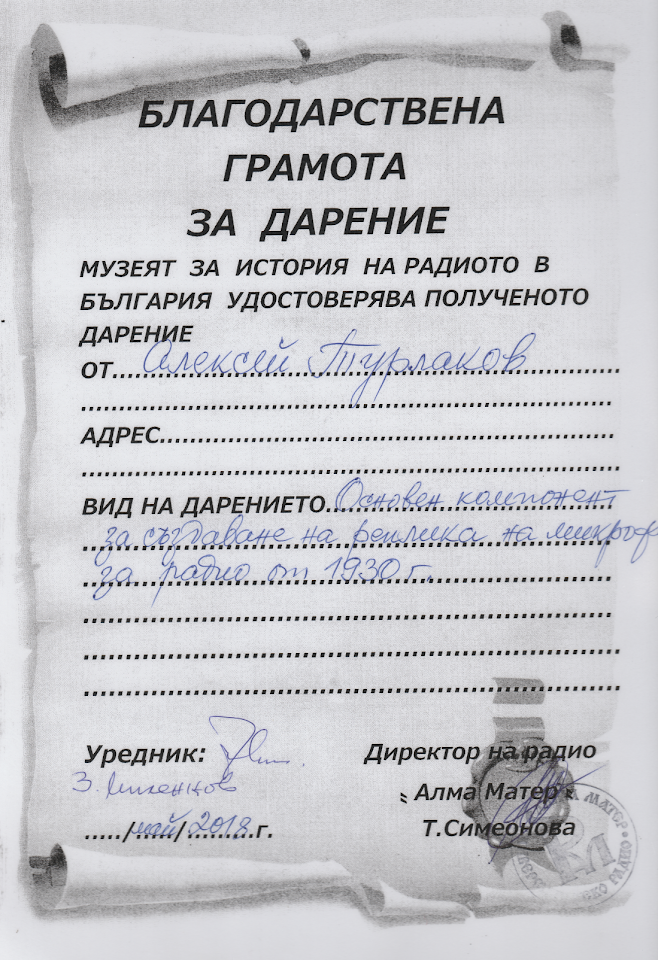 БЛАГОДАРСТВЕНА
ГРАМОТА
ЗА ДАРЕНИЕ
МУЗЕЯТ ЗА ИСТОРИЯ НА РАДИОТО В
БЪЛГАРИЯ УДОСТОВЕРЯВА ПОЛУЧЕНОТО
ДАРЕНИЕ
ОТ Алексей Турлаков
АДРЕС
ВИД НА ДАРЕНИЕТО Основен компонент
за създаване на реплика на микроф
за радио от 1930 г.
Уредник: Директор на радио
З. „ Алма Матер "
...../май/2018г. Т.Симеонова